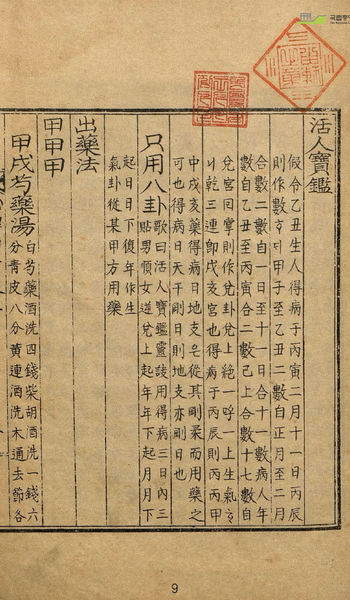 活人寶鑑
假令乙丑生人得病于丙寅二月十一日丙辰
則作數흐디甲子至乙丑二數自正月至二月
合數二數自一日至十一日合十一數病人年
數自乙丑至丙寅合二數已上合數十七數自
兌宮回掌則作兌卦兌上絶一呼一上生氣
니乾三連卽戌亥宮也得病于丙辰則丙丙甲
中戌亥藥得病日地支
從其剛柔而用藥之
可也得病日天干剛日則地支亦剛日也
只用八卦
歌曰活人寶鑑靈訣用得病三日內三
貼男順女道兌上起年年下起月月下
起日日下復年作生
氣卦從某甲方用藥
出藥法
甲甲甲
甲戌芍藥湯
白芍藥酒洗四錢柴胡酒洗一錢六
分靑皮八分黃連酒洗木通去節各
9